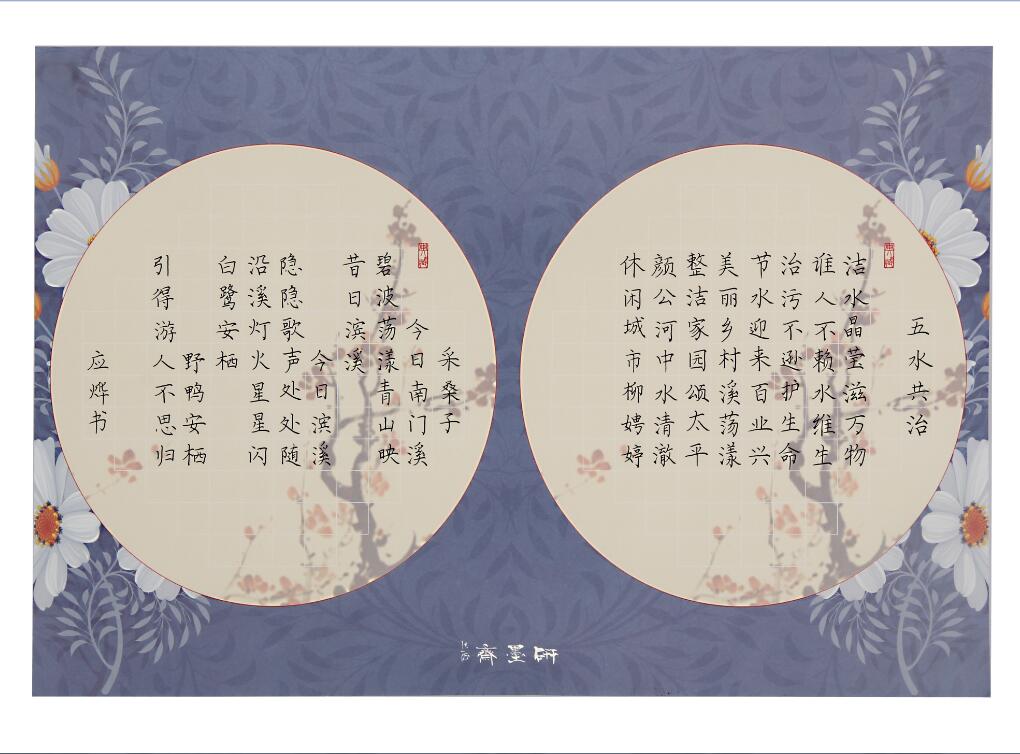 五水共治
洁水晶莹滋万物
谁人不赖水维生
治污不逊护生命
节水迎来百业兴
美丽乡村溪荡漾
整洁家园颂太平
颜公河中水清澈
休闲城市柳娉婷
采桑子
今日南门溪
碧波荡漾青山映
昔日滨溪
今日滨溪
隐隐歌声处处随
沿溪灯火星星闪
白鹭安栖
野鸭安栖
引得游人不思归
应烨书
研墨齋